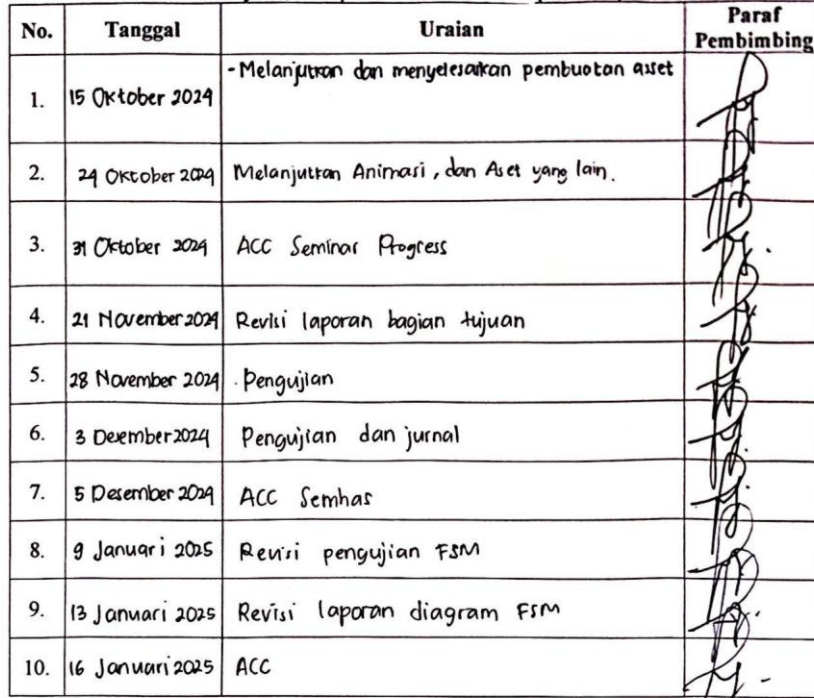 No. Tanggal Uraian Paraf Pembimbing
1. 15 Oktober 2024 - Melanjutkan dan menyelesaikan pembuatan asset
2. 24 Oktober 2024 Melanjutkan Animasi, dan Aset yang lain.
3. 31 Oktober 2024 ACC Seminar Progress
4. 21 November 2024 Revisi laporan bagian tujuan
5. 28 November 2024 Pengujian
6. 3 Desember 2024 Pengujian dan jurnal
7. 5 Desember 2024 ACC Semhas
8. 9 Januari 2025 Revisi pengujian FSM
9. 13 Januari 2025 Revisi laporan diagram FSM
10. 16 Januari 2025 ACC